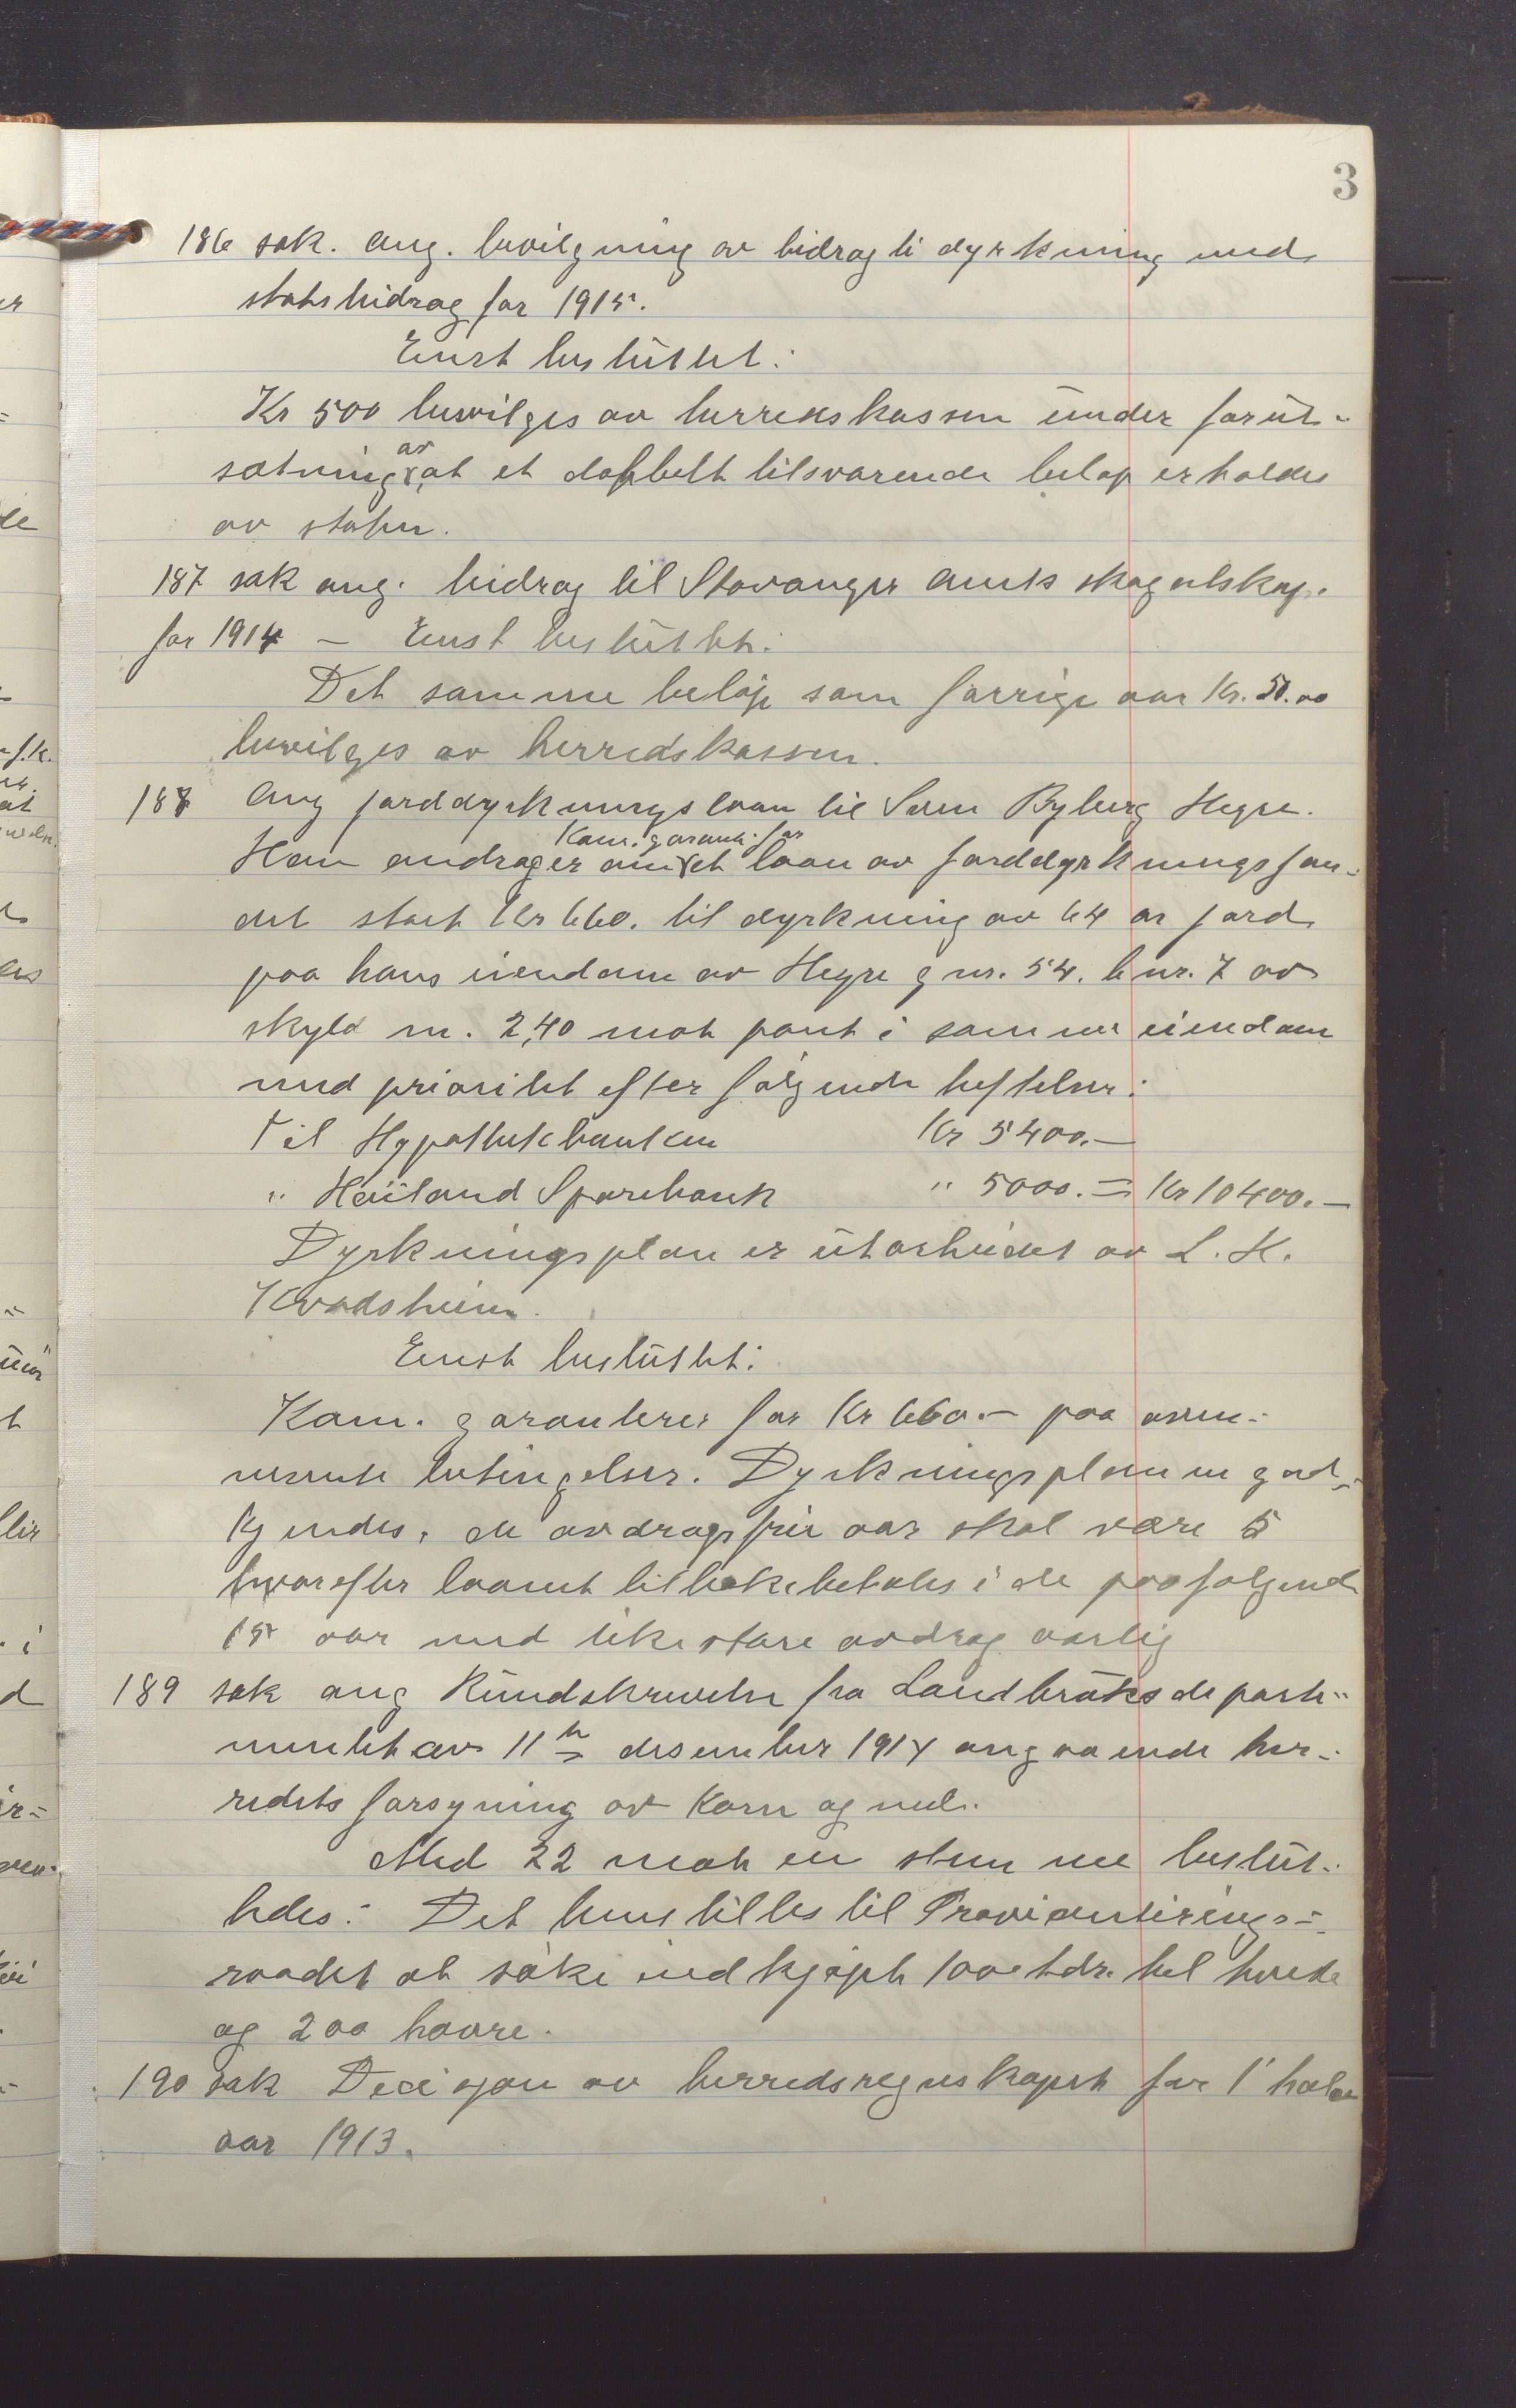 3
186 sak. ang. bevilgning av bidrag ti dyrkning med
statsbidrag for 1915.
Enst besluttet:
Kr 500 bevilges av herredskassen under forut-
sætning av at et dobbelt tilsvarende beløp erholdes
av staten.
187 sak ang. bidrag til Stavanger amts skogselskap.
for 1914 – Enst besluttet:
Det samme beløp som forrige aar Kr. 50.00
bevilges av herredskassen.
188 Ang jorddyrkningslaan til Søren Byberg Hegre.
Han andrager om Kom. garanti for et laan av jorddyrkningsfon-
det stort Kr 660. til dyrkning av 64 ar jord
paa hans eiendom av Hegre gnr. 54. bnr. 7 av
skyld m. 2,40 mot pant i samme eiendom
med prioritet efter følgende heftelser:
Til Hypothekbanken Kr 5400.–
" Høiland Sparebank " 5000. = Kr 10400.–
Dyrkningsplan er utarbeidet av L. K.
Kvadsheim.
Enst besluttet:
Kom. garanterer for Kr 660.– paa oven-
nevnte betingelser. Dyrkningsplanen god-
kjendes, de avdragsfrie aar skal være 5
hvorefter laanet tilbakebetales i de paafølgende
15 aar med like store avdrag aarlig
189 sak ang Rundskrivelse fra Landbruksdeparte-
mentet av 11te desember 1914 angaaende her-
redets forsyning av korn og mel.
Med 22 mot en stemme beslut-
tedes: Det henstilles til Provianterings-
raadet at søke indkjøpt 100 tdr. hel hvete
og 200 havre.
190 sak Decisjon av herredsregnskapet for 1' halv
aar 1913.